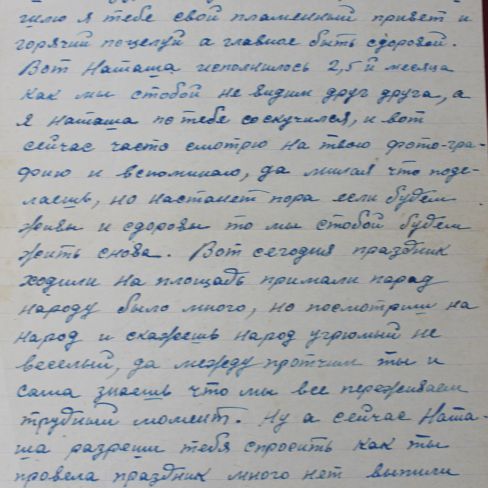 шлю я тебе свой пламенный привет и
горячий поцелуй а главное быть здоровой.
Вот Наташа исполнилось 2,5 й месяца
как мы стобой не видим друг друга, а
я Наташа по тебе соскучился, и вот
сейчас часто смотрю на твою фото-гра-
фию и вспоминаю, да милая что поде-
лаешь, но настанет пора если будем
живы и здоровы то мы стобой будем
жить снова. Вот сегодня праздник
ходили на площадь примали парад
народу было много, но посмотришь на
народ и скажешь народ угрюмый не
веселый, да между протчим ты и
сама знаешь что мы все переживаем
трудный момент. Ну а сейчас Ната-
ша разреши тебя спросить как ты
провела праздник много нет выпили